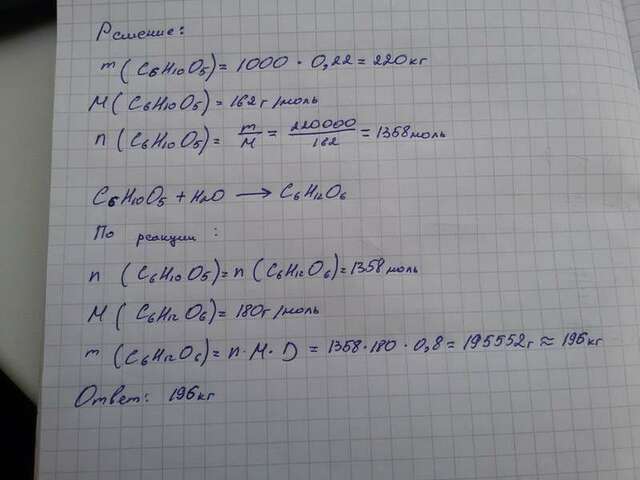 Решение:
m (C6H10O5) = 1000 · 0,22 = 220 кг
M (C6H10O5) = 162 г/моль
n (C6H10O5) = m/M = 220000/162 = 1358 моль
C6H10O5 + H2O → C6H12O6
По реакции :
n (C6H10O5) = n (C6H12O6) = 1358 моль
M (C6H12O6) = 180 г/моль
m (C6H12O6) = n · M · D = 1358 · 180 · 0,8 = 195552 г ≈ 196 кг
Ответ: 196 кг